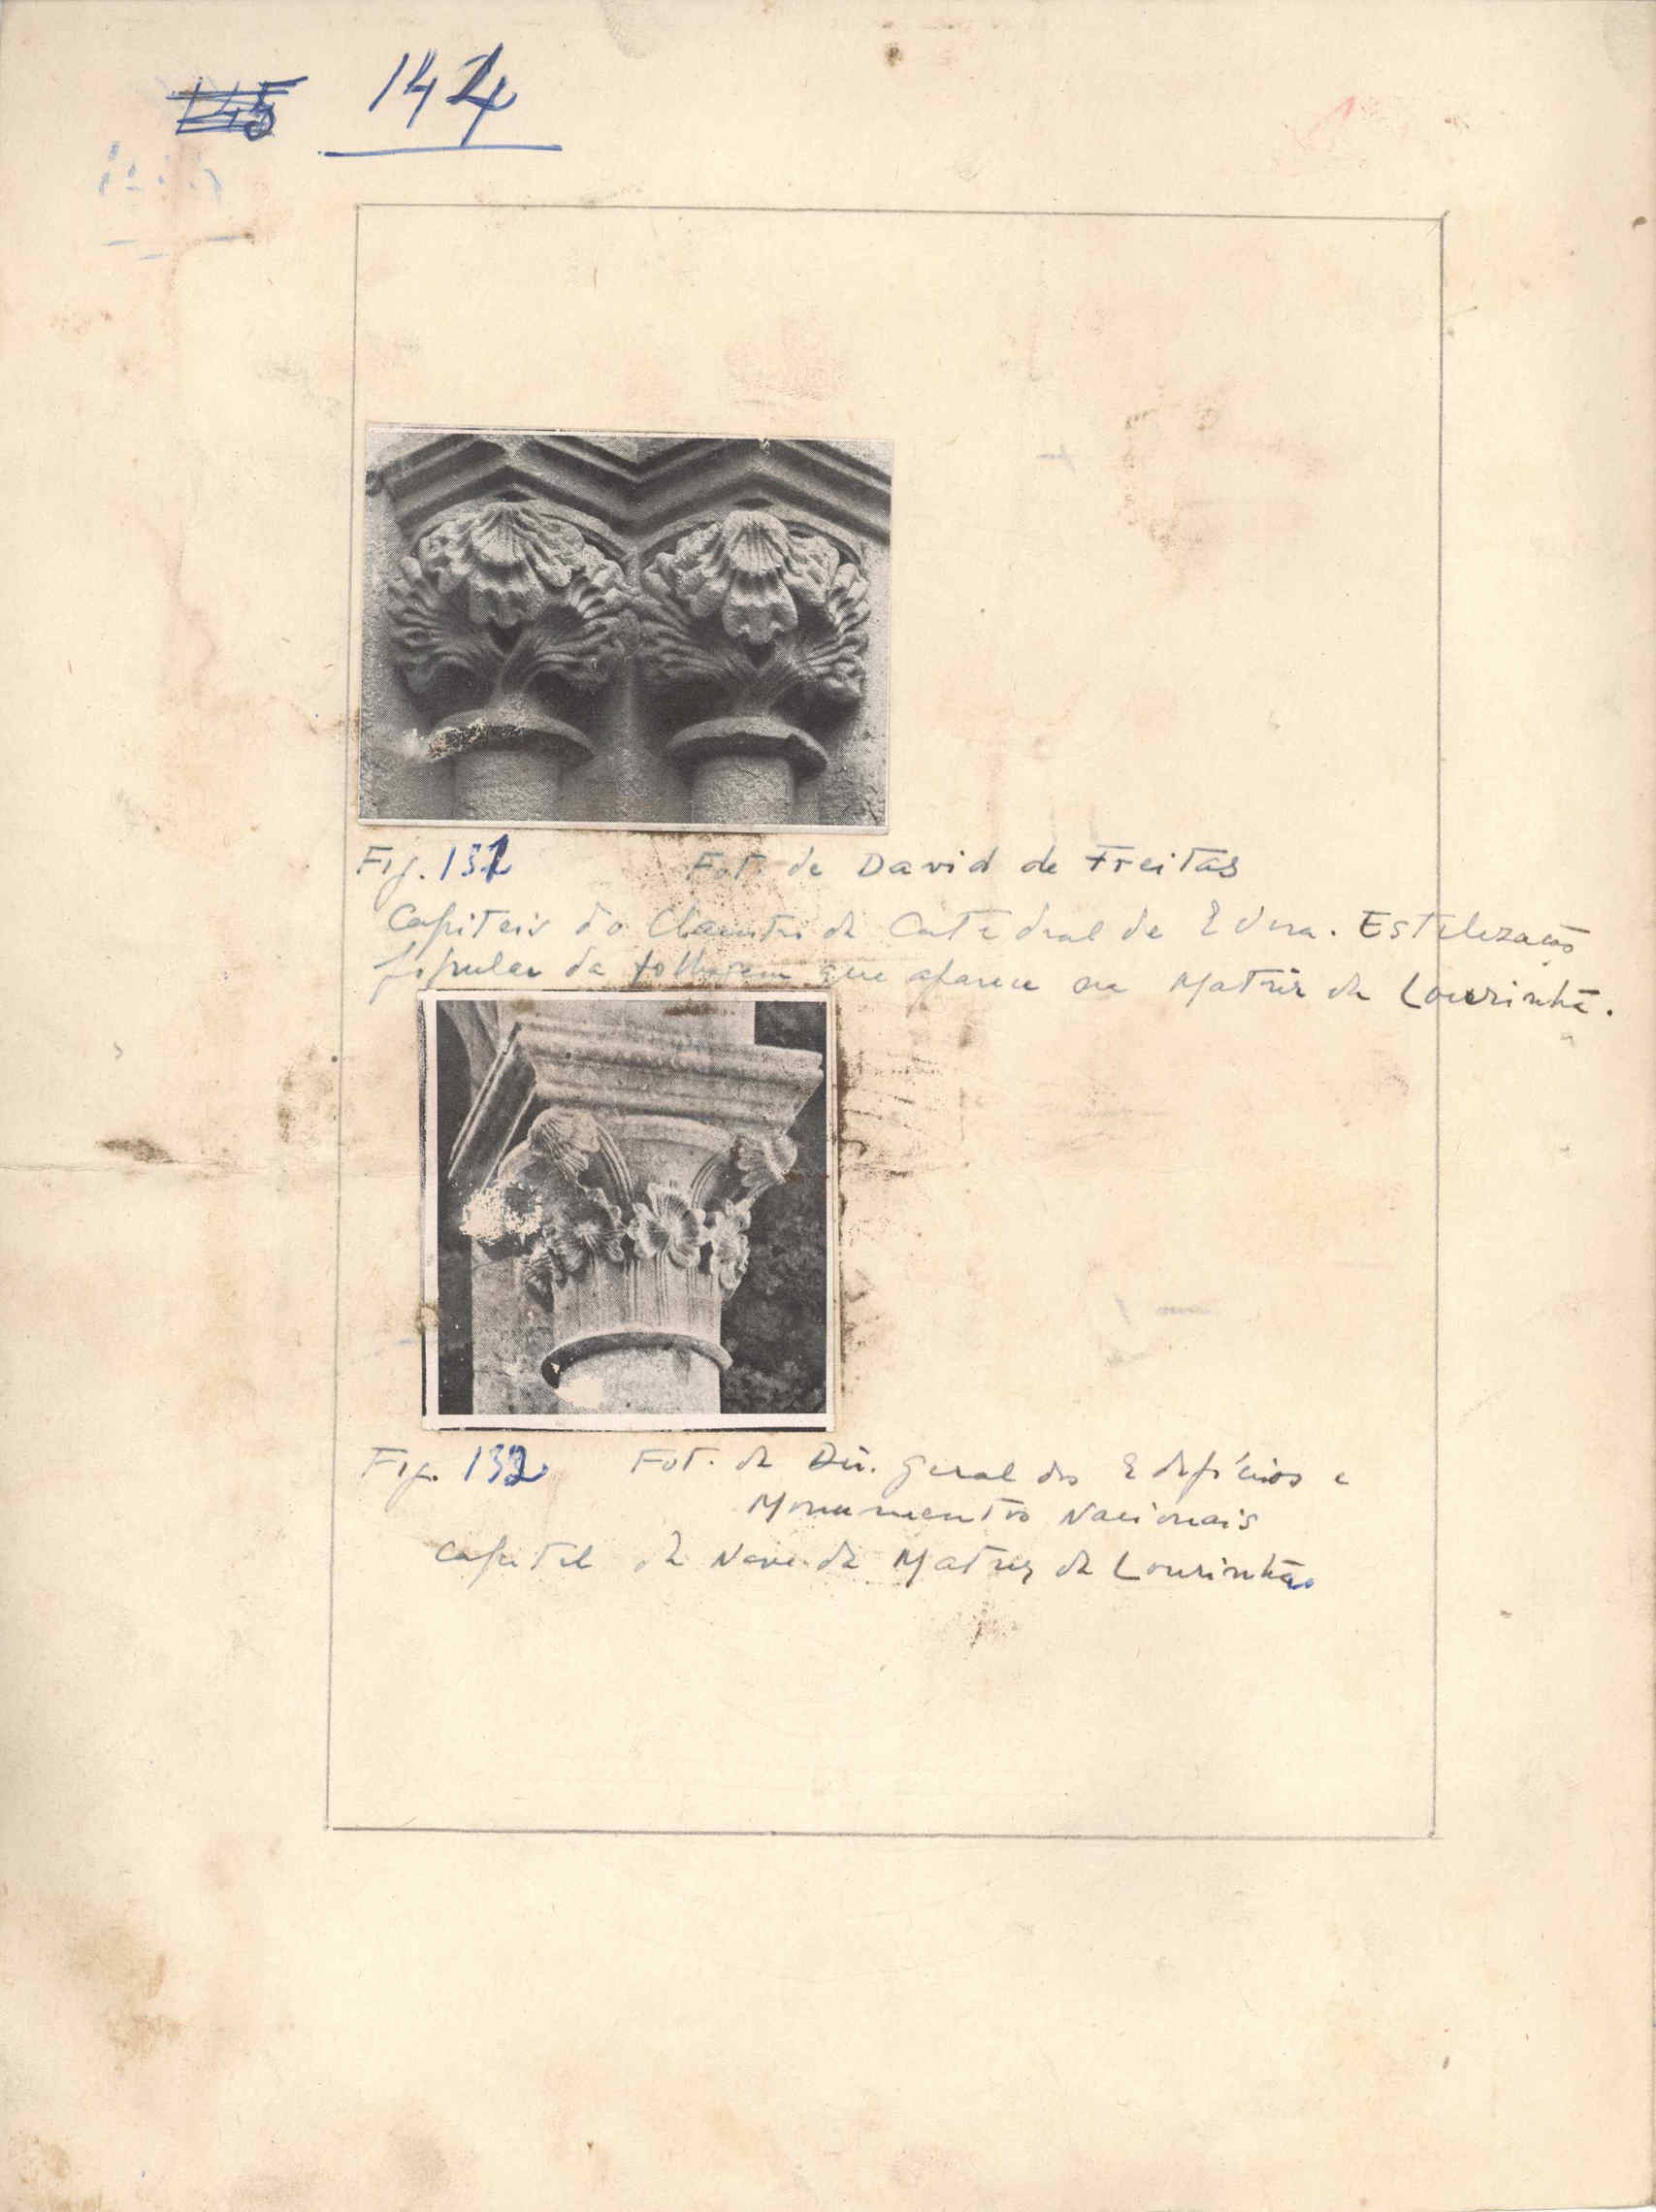 145 144
Fig. 131 Fot. de David de Freitas
Capiteis do Claustro da Catedral de Evora. Estilização
popular da folhagem que aparece na Matriz da Lourinhã.
Fig. 132 Fot. da Dir. Geral dos Edifícios e
Monumentos Nacionais
Capitel da Nave da Matriz da Lourinhã